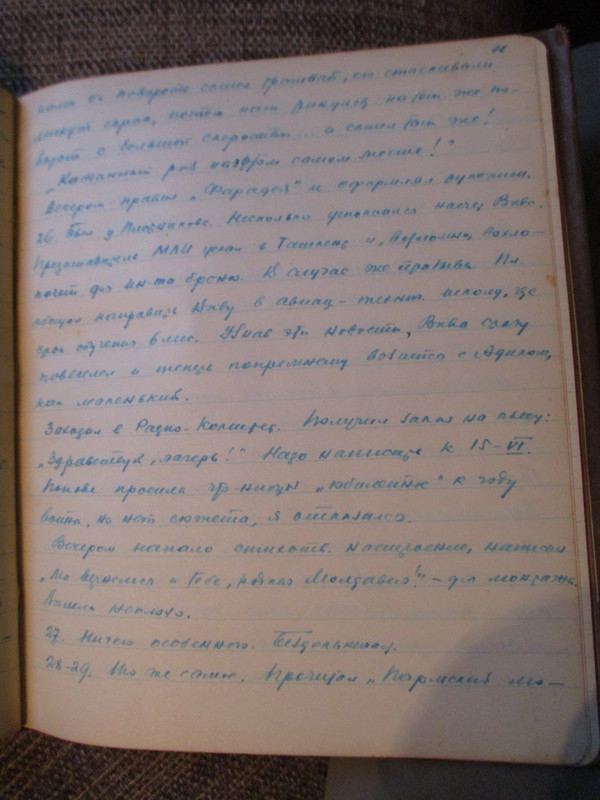 на повороте сошел трамвай, его стаскивали
потом
везет с большой скоростью... и сошел там же!
"Каждый раз на этом самом месте!"
Вечером правил "Фарадея" и оформлял рукописи.
26. Был у Плотникова. Несколько успокоился насчет Вивы.
Представитель МАИ уехал в Ташкент и, возможно, вхло-
почет для ин-та броню. В случае же провала Пл.
обещал направить Виву в авиац-технич. школу, где
срок обучения 6 мес. Узнав эти новости, Вива сразу
повеселел и теперь попрежнему возится с Адиком,
как маленький.
Заходил в Радио-Комитет. Получил заказ на пьесу:
"Здравствуй, лагерь!" Надо написать к 15-VI.
Попова просила что-нибудь "юбилейное" к году
войны, но нет сюжета, я отказался.
Вечером напало стихотв. настроение, написал
"Мы вернемся к тебе, родная Молдавия!" - для монтажа.
Вышло неплохо.
27. Ничего особенного. Бездельничал.
28-29. То же самое. Прочитал "Пармский мо-